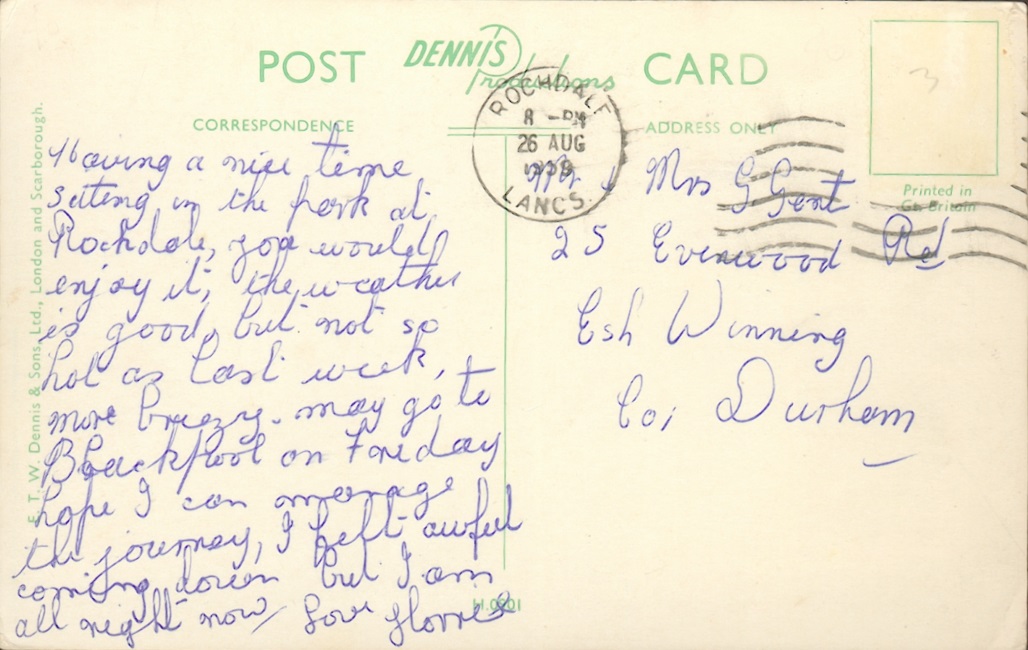 POST DENNIS Productions CARD
CORRESPONDENCE
ADDRESS ONLY
Printed in
Gt. Britain
ROCHDALE
8 - PM
26 AUG
LANCS.
3
E. T. W. Dennis & Sons, Ltd., London and Scarborough.
Having a nice time
sitting in the park at
Rochdale, you would
enjoy it, the weather
is good, but not so
hot as last week,
more breezy. may go to
Blackpool on Friday
hope I can manage
the journey, I felt awful
coming down but I am
all right now Love
Mr & Mrs G Gent
25 Evenwood Rd
Esh Winning
Co, Durham